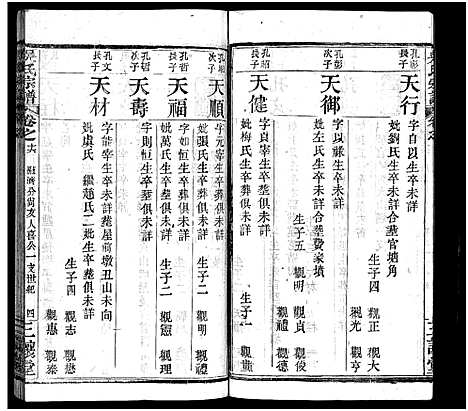 孔彰長子
天行
字自以生卒未詳
妣劉氏生卒未詳合葬官塘角
生子四 觀正 觀大
觀光 觀亨
孔彰次子
天御
字以謙生卒未詳
妣左氏生卒未詳合葬費家墳
生子五 觀明 觀貞 觀俊
觀禮 觀德
天健
字貞宰生卒葬俱未詳
妣梅氏生卒葬俱未詳
生子一
次子
天順
字元宰生卒葬俱未詳
妣張氏生卒葬俱未詳
生子二 觀明 觀禮
孔哲長子
天福
字如恒生卒葬俱未詳
妣萬氏生卒葬俱未詳
生子二 觀憲 觀理
孔哲次子
天壽
字則恒生卒葬俱未詳
孔文長子
天材
字能宰生卒未詳葬屋前墩丑山未向
妣虞氏 繼趙氏二妣生卒葬俱未詳
生子四 觀志 觀堯
觀惠 觀泰
吳氏宗譜
卷之六
公尚友人喜公一支世紀
四
三讓堂